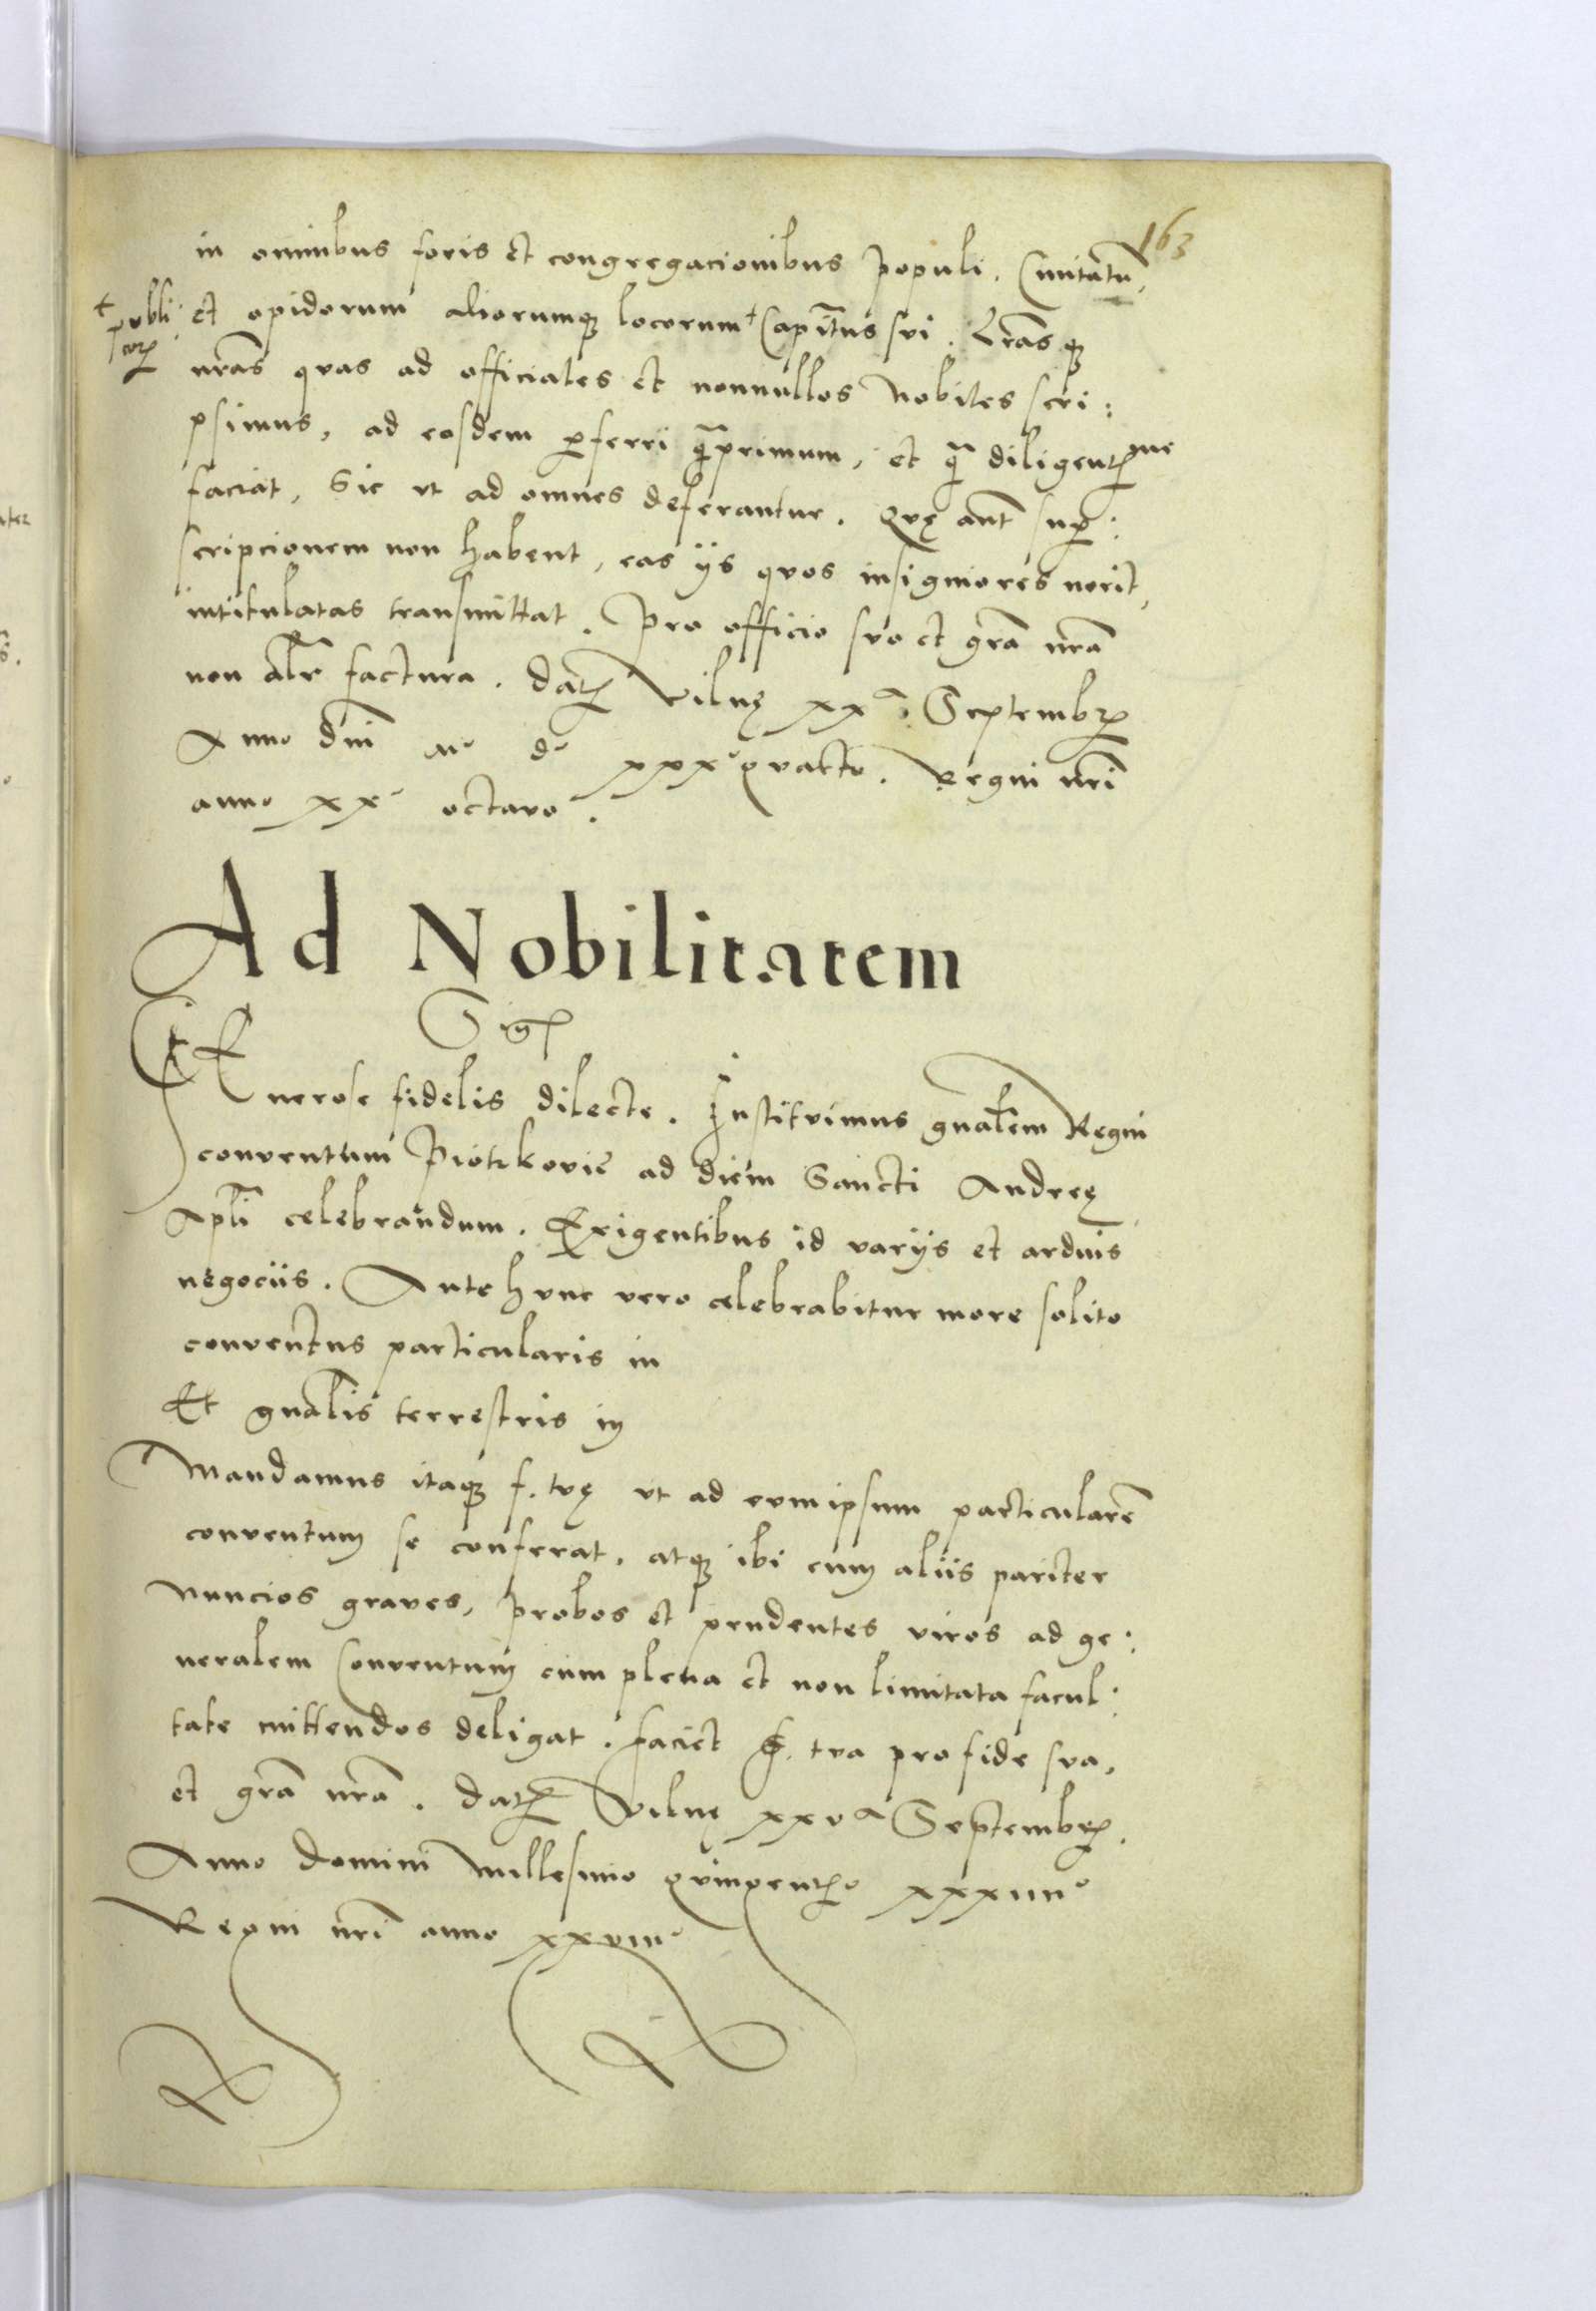 163
in omnibus foris et congregacionibus populi. Civitatu,
et opidorum aliorumq; locorum + Capitātus sui. Lrās q;
+ publi:
corꝝ
nrās quas ad officiales et nonnullos Nobiles scri:
psimus, ad eosdem ꝑferri q̄primum, et q̄ diligentꝭme
faciat, Sic ut ad omnes deferantur. Quę aūt suꝑ:
scripcionem non habent, eas ijs quos insigniores norit,
intitulatas transmittat. Pro officio suo et grā nrā
non alr̄ factura. Datꝭ Vilnę xxa. Septembꝭ
Anno dnī Mo do xxxo quarto. Regni nrī
anno xxo octavo.
Ad Nobilitatem
Sigꝭ
GEnerose fidelis dilecte. Instituimus gnālem Regni
conventum Piotrkovię ad diem Sancti Andreę
Aplī celebrandum. Exigentibus id varijs et arduis
negociis. Ante hunc vero celebrabitur more solito
conventus particularis in
Et gnālis terrestris in
Mandamus itaq; f. tuę ut ad eum ipsum particularē
conventum se conferat, atq; ibi cum aliis pariter
nuncios graves, probos et prudentes viros ad ge:
neralem Conventum cum plena et non limitata facul:
tate mittendos deligat. faciet f. tua pro fide sua,
et grā nrā. Datꝭ Vilnę xxva Septembꝭ.
Anno domini Millesimo quingentꝭo xxxiiiio
Regni nrī anno xxviiio